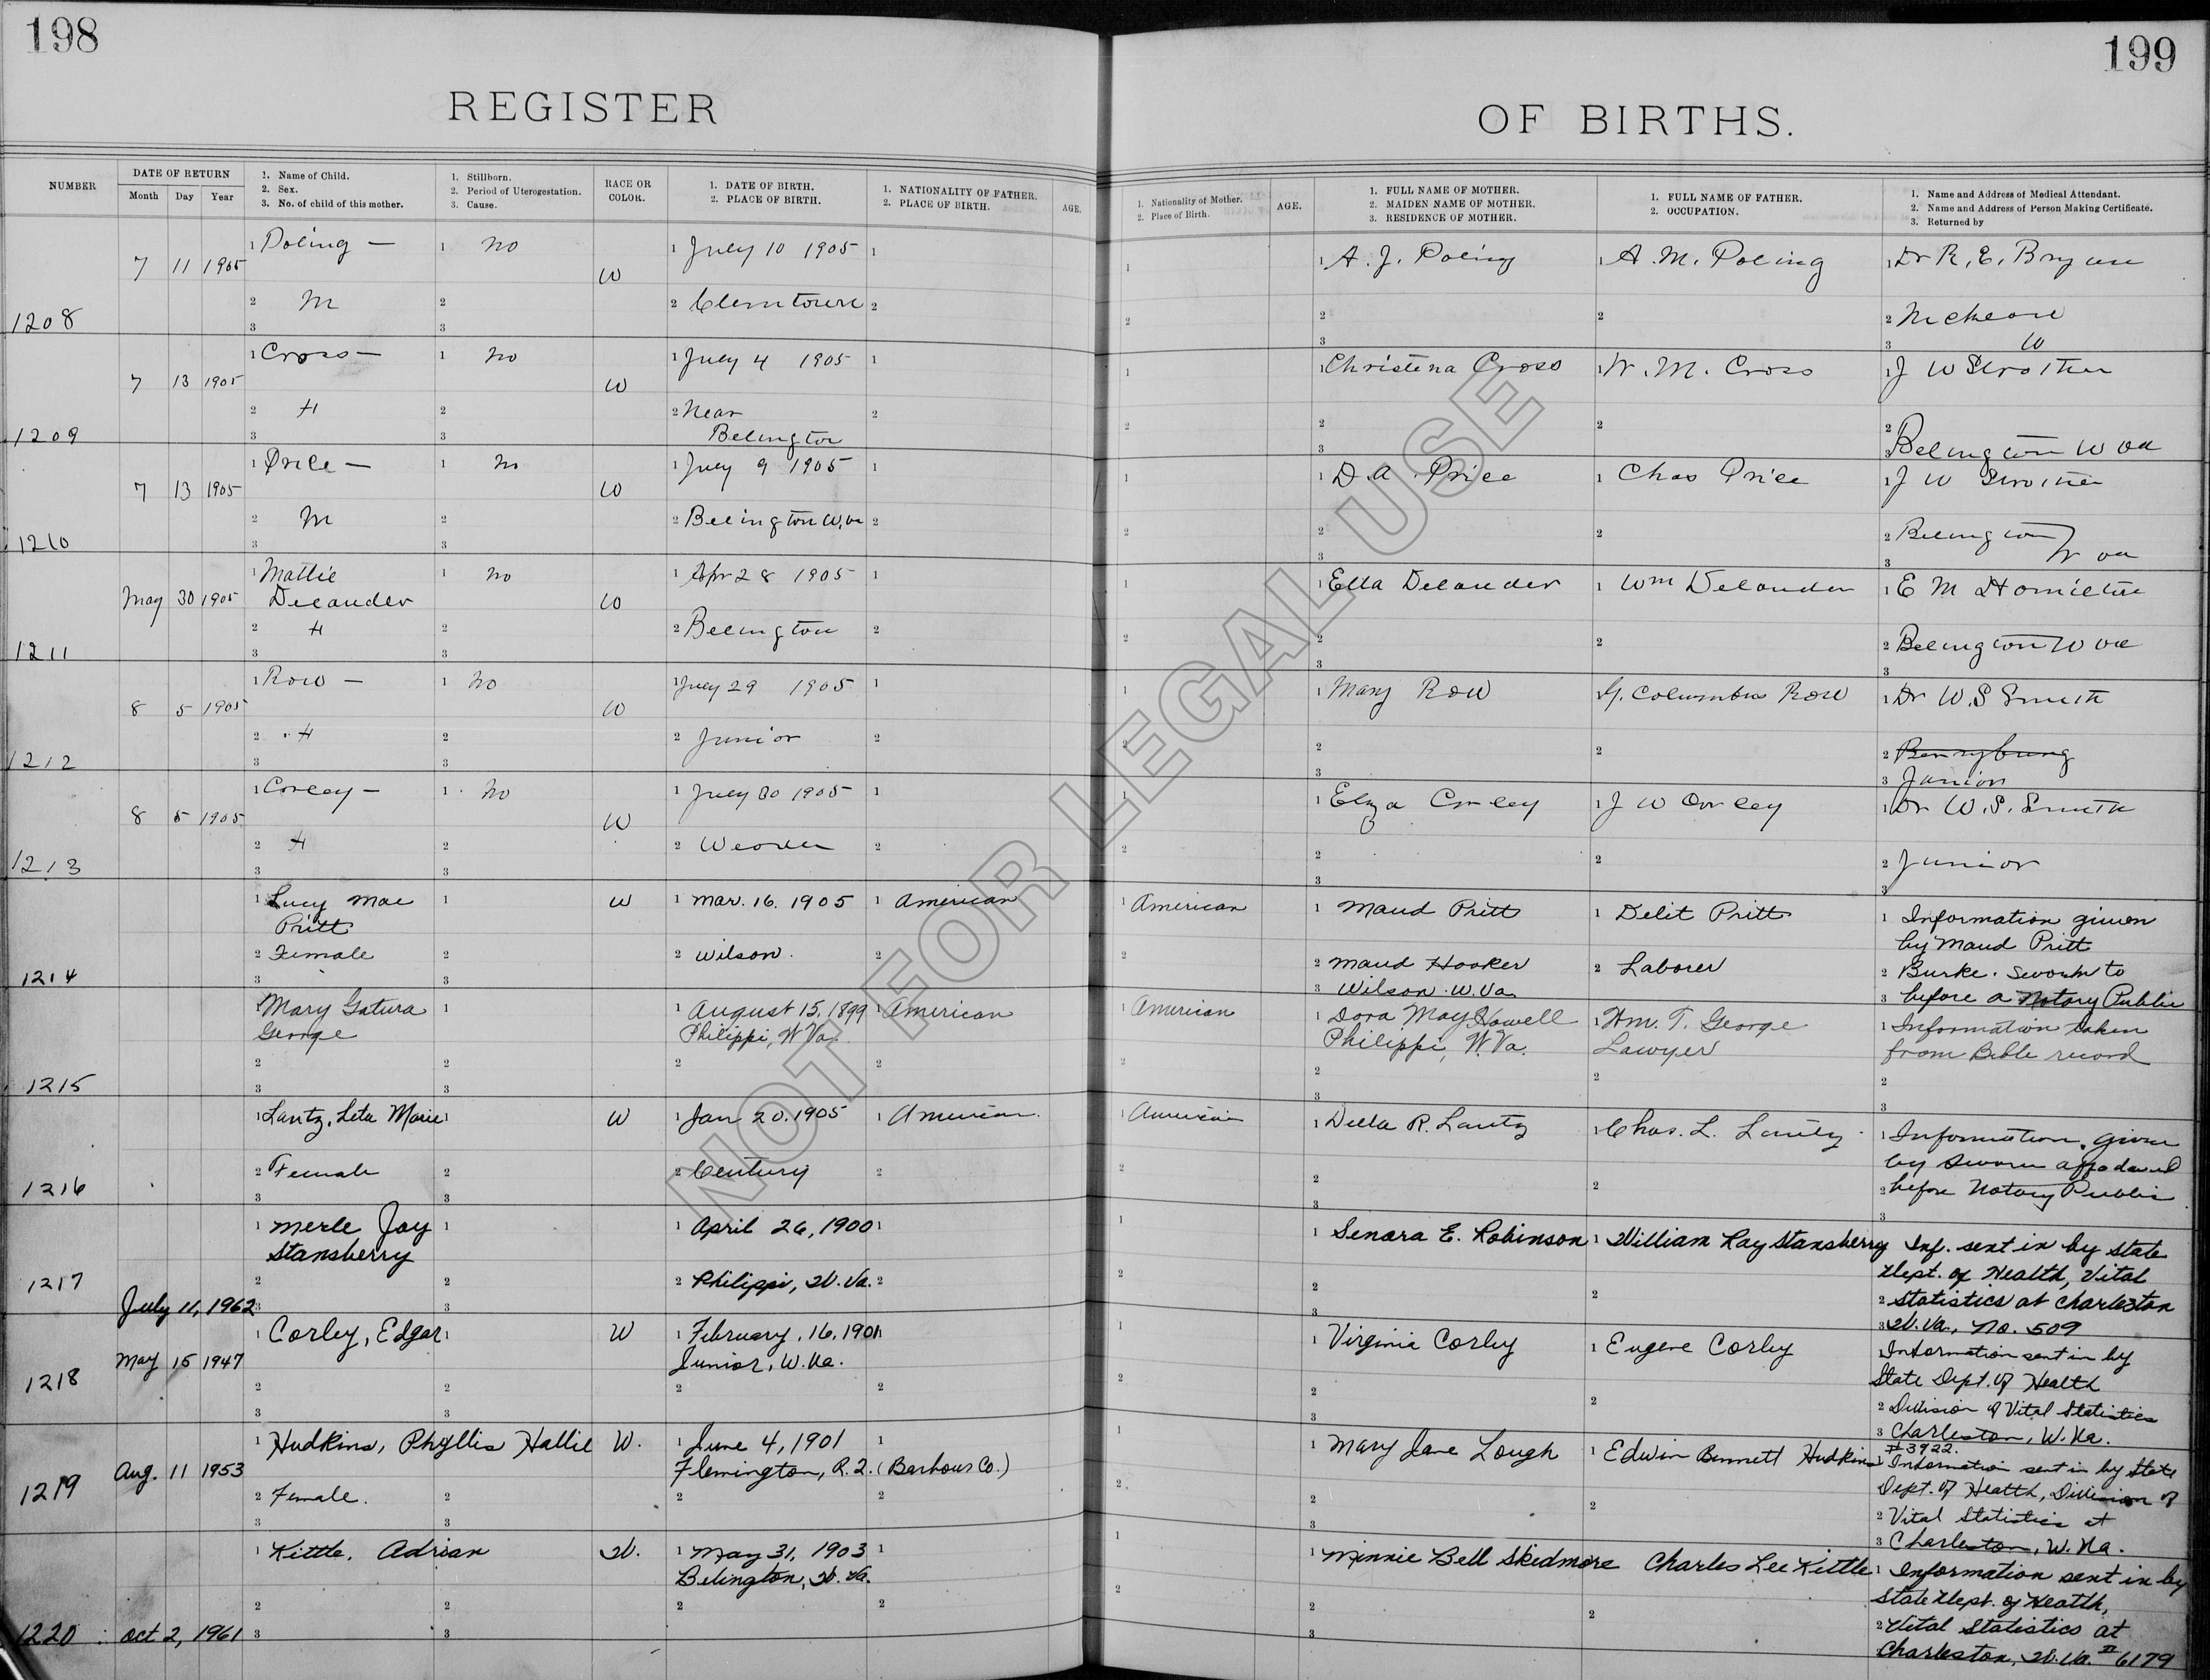 198
REGISTER
NUMBER
DATE OF RETURN
Month Day Year
1. Name of Child.
2. Sex.
3. No. of child of this mother.
1. Stillborn.
2. Period of Uterogestation.
3. Cause.
RACE OR COLOR.
1. DATE OF BIRTH.
2. PLACE OF BIRTH.
1. NATIONALITY OF FATHER.
2. PLACE OF BIRTH.
AGE.
199
OF BIRTHS.
1. Nationality of Mother.
2. Place of Birth.
AGE.
1. FULL NAME OF MOTHER.
2. MAIDEN NAME OF MOTHER.
3. RESIDENCE OF MOTHER.
1. FULL NAME OF FATHER.
2. OCCUPATION.
1. Name and Address of Medical Attendant.
2. Name and Address of Person Making Certificate.
3. Returned by
1208 7 11 1905
1 Poling — 1 No W 1 July 10 1905 1
2 M 2 2 Clemtown 2
3 3
1 1 A. J. Poling 1 A. M. Poling 1 Dr R. E. Bryan
2 2 2 2
3 3 W
1209 7 13 1905
1 Cross — 1 No W 1 July 4 1905 1
2 H 2 2 Near Belington 2
3 3
1 1 Christena Cross 1 W. M. Cross 1 J W Strother
2 2 2 2
3 3 Belington W Va
1210 7 13 1905
1 Price — 1 No W 1 July 9 1905 1
2 M 2 2 Belington W. va 2
3 3
1 1 D. A. Price 1 Chas Price 1 J W Strother
2 2 2 2 Belington
3 3 W va
1211 May 30 1905
1 Mattie Delauder 1 No W 1 Apr 28 1905 1
2 H 2 2 Belington 2
3 3
1 1 Ella Delauder 1 Wm Delauder 1 E M Hamilton
2 2 2 2 Belington W va
3 3
1212 8 5 1905
1 Row — 1 No W 1 July 29 1905 1
2 H 2 2 Junior 2
3 3
1 1 Mary Row 1 G. Columbus Row 1 Dr W. S Smith
2 2 2 2
3 3 Junior
1213 8 5 1905
1 Corley — 1 No W 1 July 30 1905 1
2 H 2 2 Weaver 2
3 3
1 1 Eliza Corley 1 J W Corley 1 Dr W. S. Smith
2 2 2 2 Junior
3 3
1214
1 Lucy Mae Pritt 1 W 1 Mar. 16. 1905 1 American
2 Female 2 2 Wilson. 2
3 3
1 American 1 Maud Pritt 1 Delit Pritt 1 Information given
by Maud Pritt
2 2 Maud Hooker 2 Laborer 2 Burke. sworn to
3 Wilson. W. Va 3 before a Notary Public
1215
1 Mary Gatura George 1 1 August 15, 1899 1 American
Philippi, W Va.
2 2 2 2
3 3
1 American 1 Dora May Howell 1 Wm. T. George 1 Information taken
Philippi, W. Va. Lawyer from Bible record
2 2 2 2
3 3
1216
1 Lantz, Leta Marie 1 W 1 Jan 20. 1905 1 American
2 Female 2 2 Century 2
3 3
1 American 1 Della R. Lantz 1 Chas. L. Lantz 1 Information given
by sworn affadavid
2 2 2 2 before Notary Public
3 3
1217 July 11, 1962
1 Merle Jay Stansberry 1 1 April 26, 1900 1
2 2 2 Philippi, W. Va. 2
3 3
1 1 Senora E. Robinson 1 William Ray Stansberry Inf. sent in by State
Dept. of Health, Vital
2 2 2 2 Statistics at Charleston
3 3 W. Va., No. 509
1218 May 15 1947
1 Corley, Edgar 1 W 1 February. 16. 1901 1
Junior, W. Va.
2 2 2 2
3 3
1 1 Virginia Corley 1 Eugene Corley 1 Information sent in by
State Dept. of Health
2 2 2 2 Division of Vital Statistics
3 3 Charleston, W. Va.
# 3922.
1219 Aug. 11 1953
1 Hudkins, Phyllis Hallie W. 1 June 4, 1901 1
Flemington, R. 2. (Barbour Co.)
2 Female. 2 2 2
3 3
1 1 Mary Jane Lough 1 Edwin Bennett Hudkins 1 Information sent in by State
Dept. of Health, Division of
2 2 2 2 Vital Statistics at
3 3 Charleston, W. Va.
1220 Oct 2, 1961
1 Kittle, Adrian W. 1 May 31, 1903 1
Belington, W. Va.
2 2 2 2
3 3
1 1 Minnie Bell Skidmore Charles Lee Kittle 1 Information sent in by
State Dept. of Health,
2 2 2 2 Vital Statistics at
3 Charleston, W. Va. # 6179
NOT FOR LEGAL USE